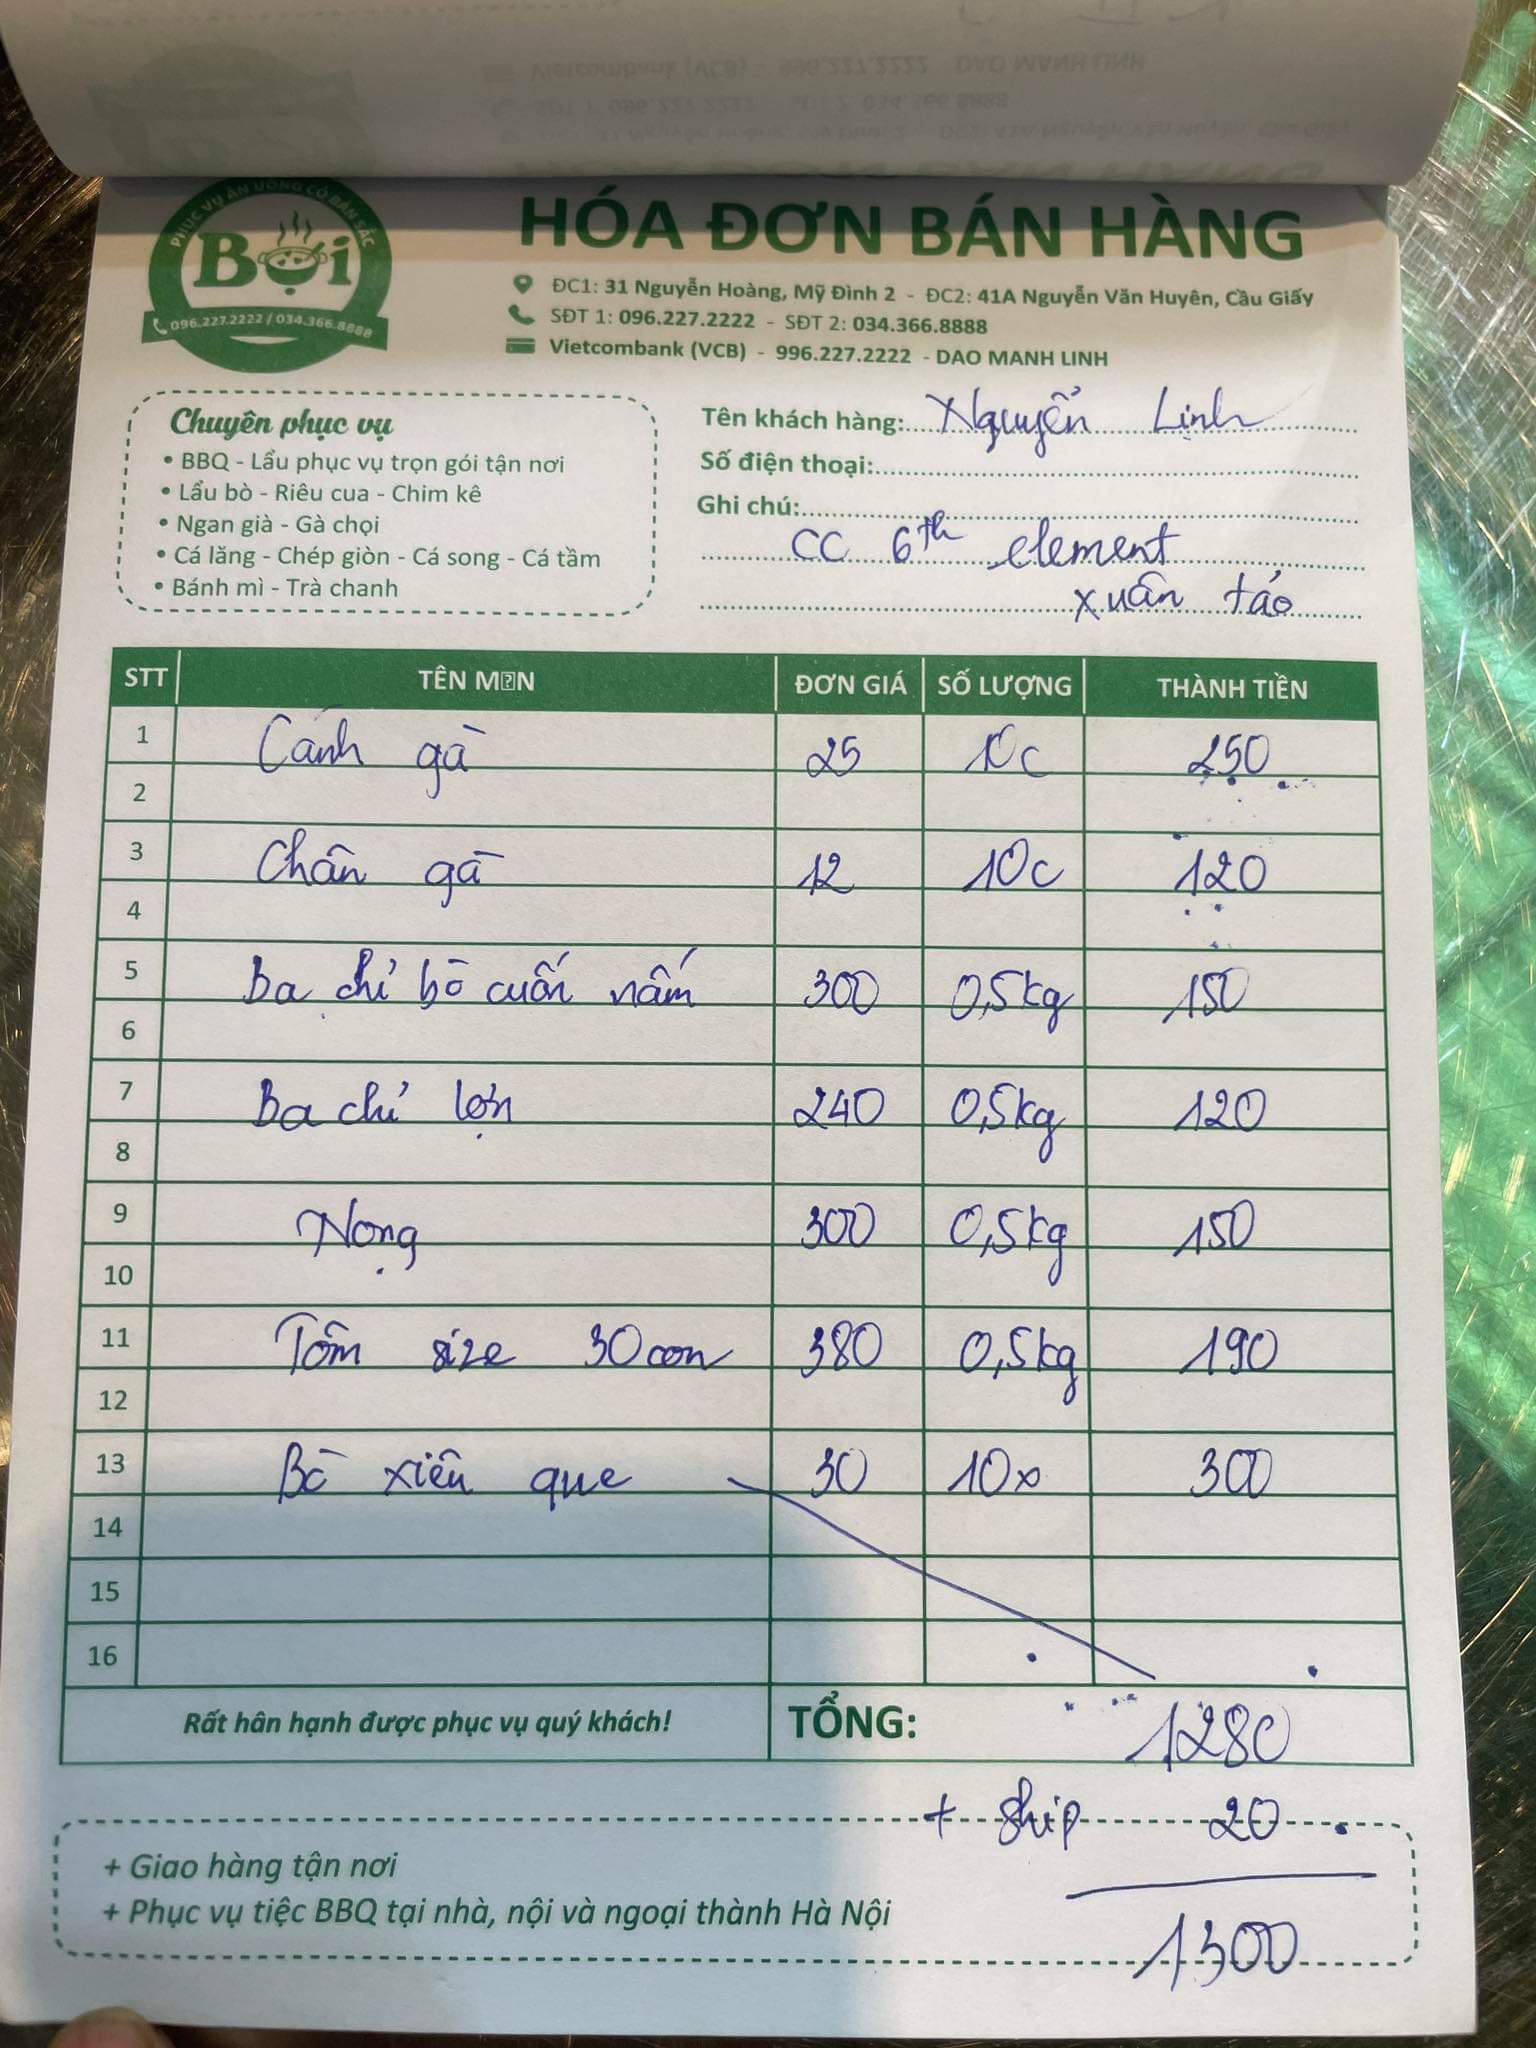 PHỤC VỤ ĂN UỐNG CÓ BẢN SẮC
Bụi
096.227.2222 / 034.366.8888
HÓA ĐƠN BÁN HÀNG
ĐC1: 31 Nguyễn Hoàng, Mỹ Đình 2 - ĐC2: 41A Nguyễn Văn Huyên, Cầu Giấy
SĐT 1: 096.227.2222 - SĐT 2: 034.366.8888
Vietcombank (VCB) - 996.227.2222 - DAO MANH LINH
Chuyên phục vụ
• BBQ - Lẩu phục vụ trọn gói tận nơi
• Lẩu bò - Riêu cua - Chim kê
• Ngan già - Gà chọi
• Cá lăng - Chép giòn - Cá song - Cá tầm
• Bánh mì - Trà chanh
Tên khách hàng: Nguyễn Linh
Số điện thoại:
Ghi chú:
CC 6th element
xuân tảo
STT TÊN M�N ĐƠN GIÁ SỐ LƯỢNG THÀNH TIỀN
1 Cánh gà 25 10c 250
2
3 Chân gà 12 10c 120
4
5 Ba chỉ bò cuốn nấm 300 0,5kg 150
6
7 Ba chỉ lợn 240 0,5kg 120
8
9 Nọng 300 0,5kg 150
10
11 Tôm size 30con 380 0,5kg 190
12
13 Bò xiên que 30 10x 300
14
15
16
Rất hân hạnh được phục vụ quý khách! TỔNG: 1280
+ ship 20
1300
+ Giao hàng tận nơi
+ Phục vụ tiệc BBQ tại nhà, nội và ngoại thành Hà Nội